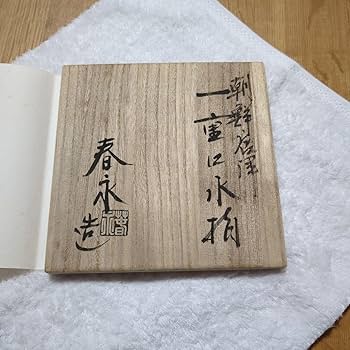 朝鮮唐津
一重口水指
春永造